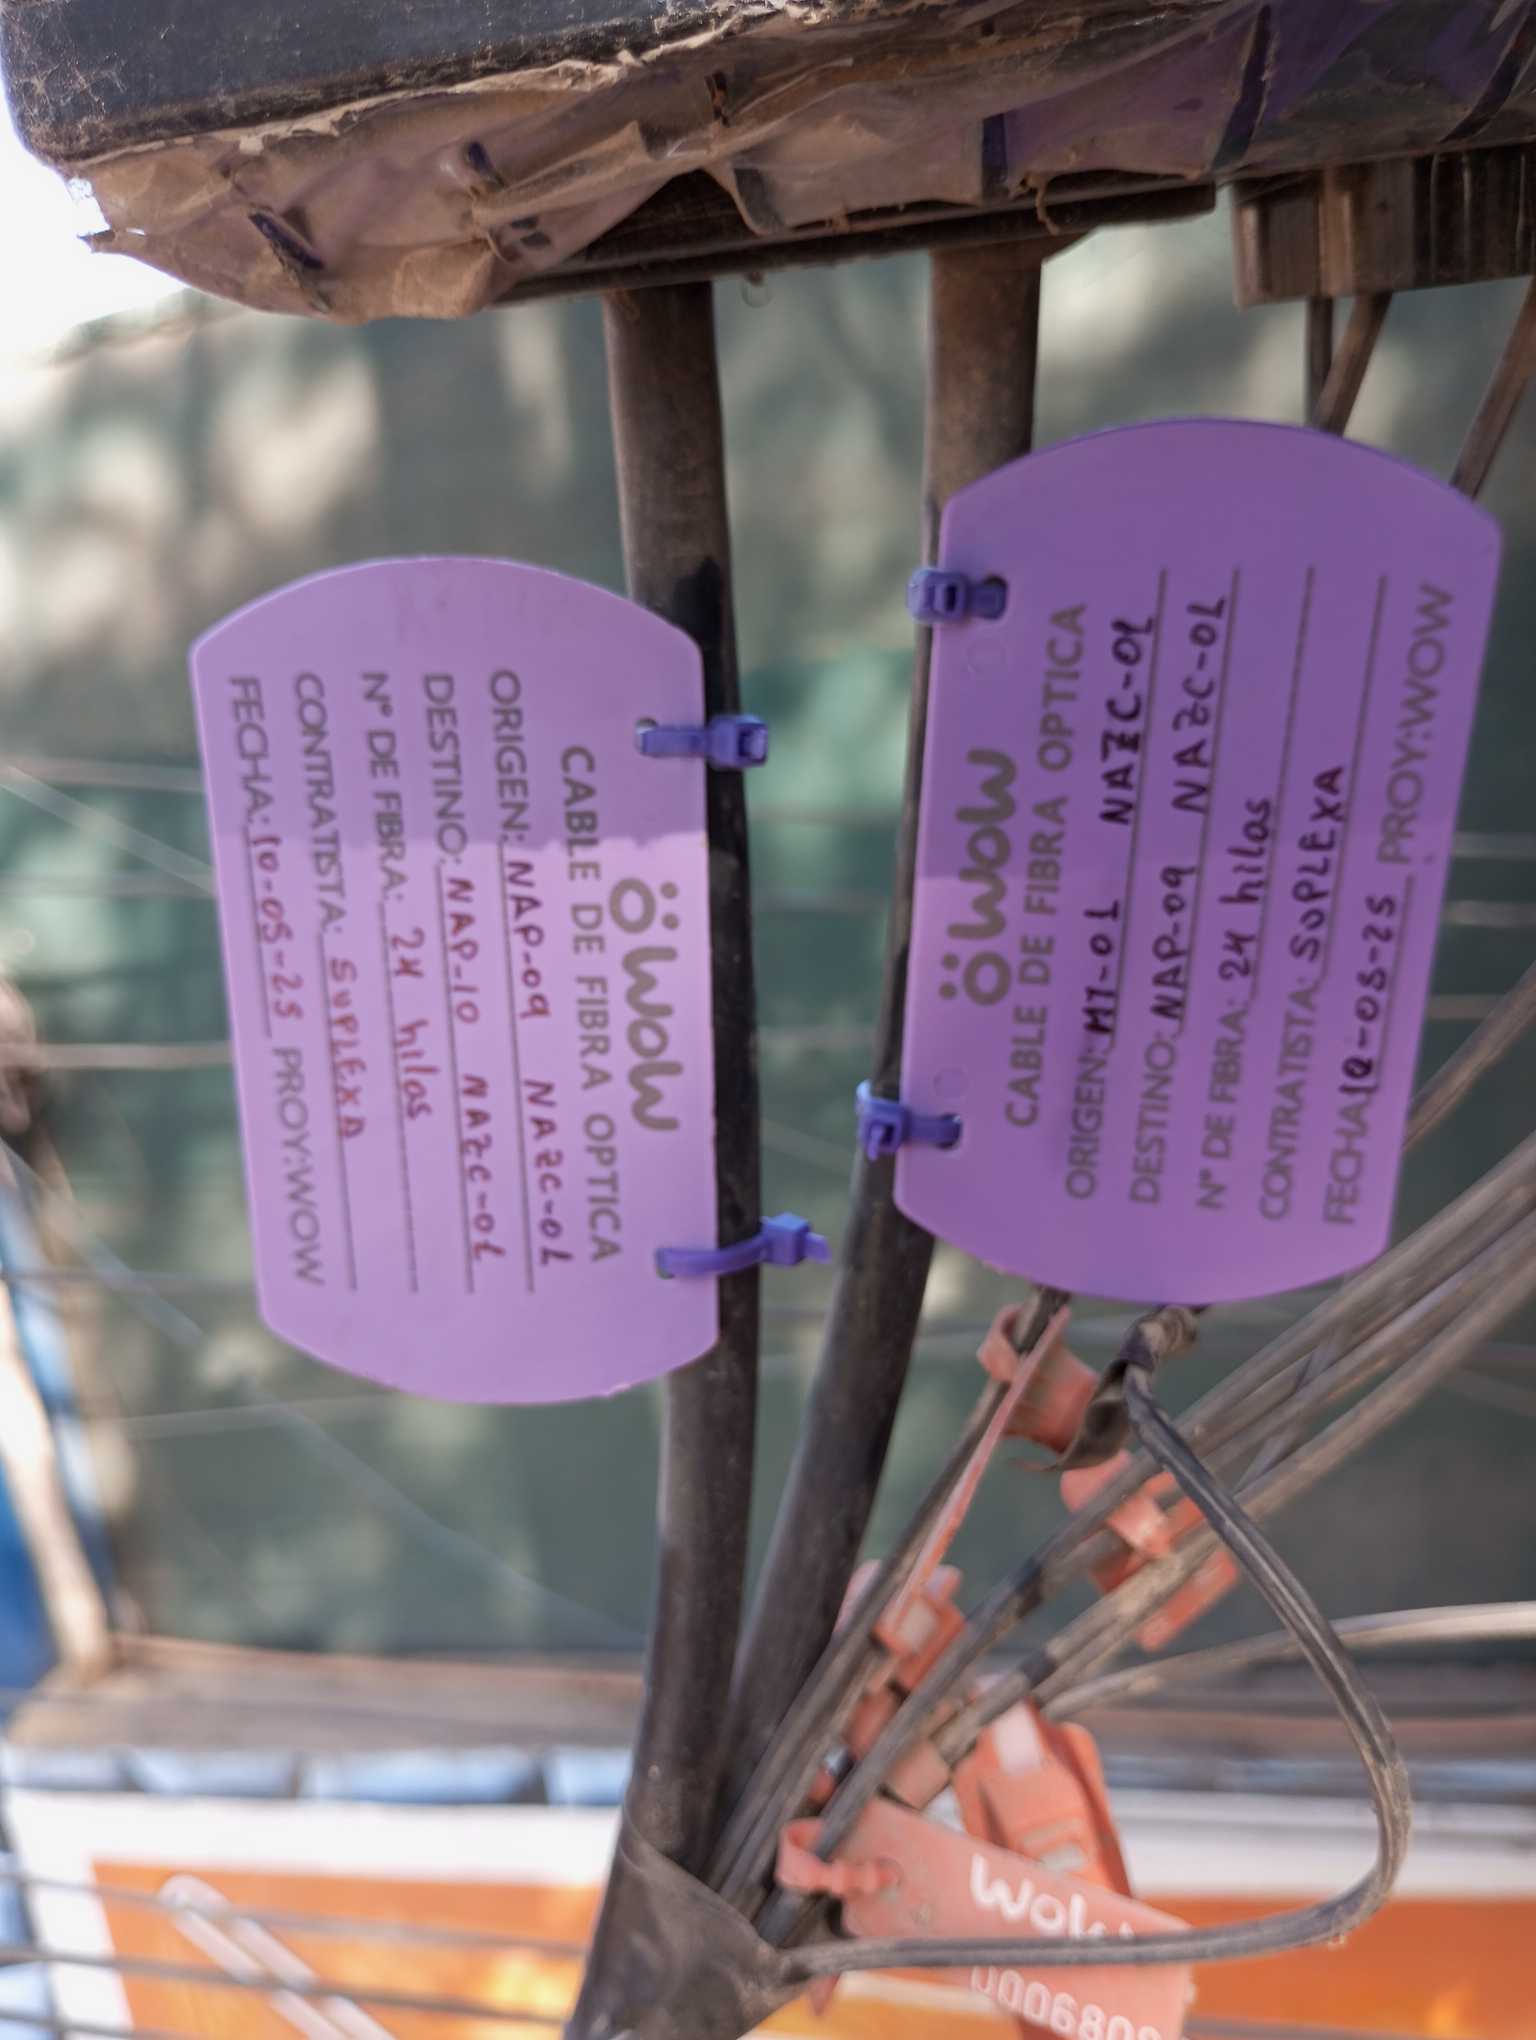 wow
CABLE DE FIBRA OPTICA
ORIGEN: NAP-09 NAZC-01
DESTINO: NAP-10 NAZC-01
N° DE FIBRA: 24 hilos
CONTRATISTA: SUPLEXA
FECHA: 10-05-25 PROY:WOW
wow
CABLE DE FIBRA OPTICA
ORIGEN: MT-01 NAZC-01
DESTINO: NAP-09 NAZC-01
N° DE FIBRA: 24 hilos
CONTRATISTA: SUPLEXA
FECHA 10-05-25 PROY:WOW